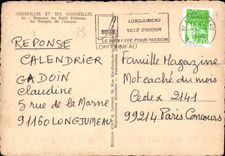 VERSAILLES ET SES MERVEILLES
Hameau du Petit Trianon
Le Temple de l'Amour
LONGJUMEAU
VILLE D'AVENIR
POUR PASSION
REPONSE
CALENDRIER
GADOIN
Claudine
5 rue de la Marne
91160 LONGJUMEAU
Famille Magazine
Mot caché du mois
Cedex 2141
99214 Paris Concours